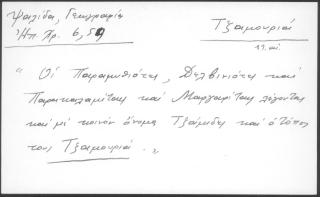 Ψαλίδα, Γεωγραφία
Ἠπ. Χρ. 6, 59
Τζαμουριά
"Οἱ Παραμυθιῶτες, Δελβινιῶτες καὶ
Παρακαλαμῖται καὶ Μαργαρίται λέγονται
καὶ μὲ κοινὸν ὄνομα Τζάμιδες καὶ ὁ τόπος
τους Τζαμουριά."